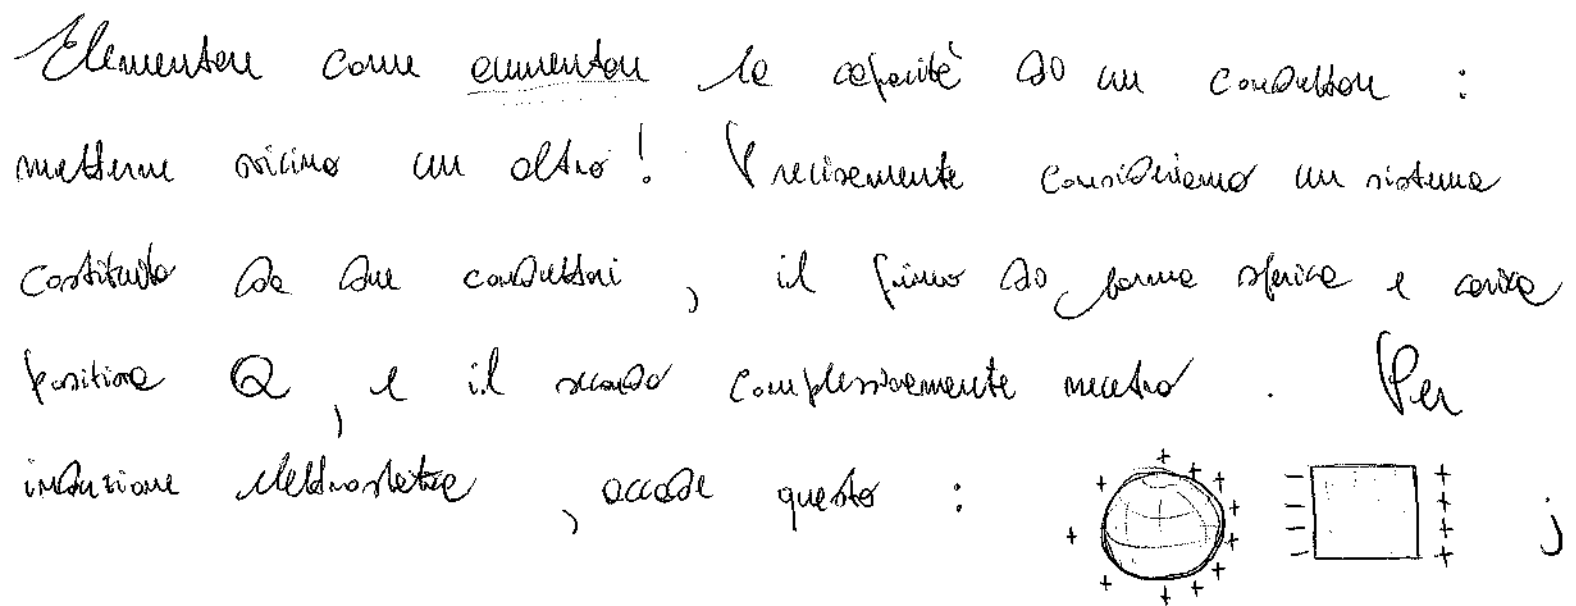 Elementare come aumentare la capacità di un conduttore :
metterne vicino un altro! Precisamente consideriamo un sistema
costituito da due conduttori, il primo di forma sferica e carica
positiva Q, e il secondo complessivamente neutro. Per
induzione elettrostatica, accade questo : ;